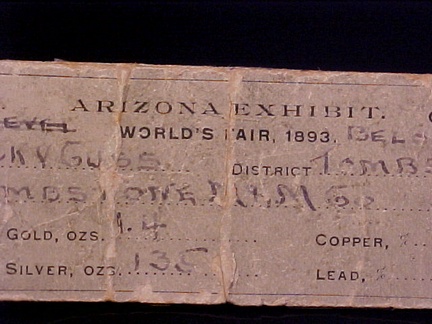 ARIZONA EXHIBIT.
EVEL WORLD'S FAIR, 1893. BEL
CKY CUSS DISTRICT TOMBS
OMBSTONE M&M Co
GOLD, OZS. .4 COPPER, %
SILVER, OZS. 135 LEAD, %